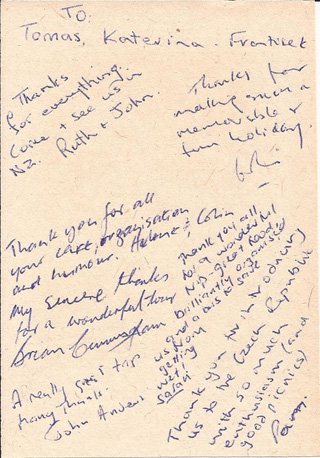 To:
Tomas, Katerina. Frantisek
Thanks
for everything.
Come + see us in
NZ. Ruth + John.
Thanks for
making such a
memorable &
fun holiday.
Thank you for all
your care, organisation
and humour. Helene & Colin
My sincere thanks
for a wonderful tour
Brian Cunningham
A really great trip
Many thanks.
John
Thank you all
for a wonderful
trip - great food,
brilliantly organised
Thank you for introducing
us to the Czech Republic
with so much
enthusiasm (and
good picnics)
Pam.